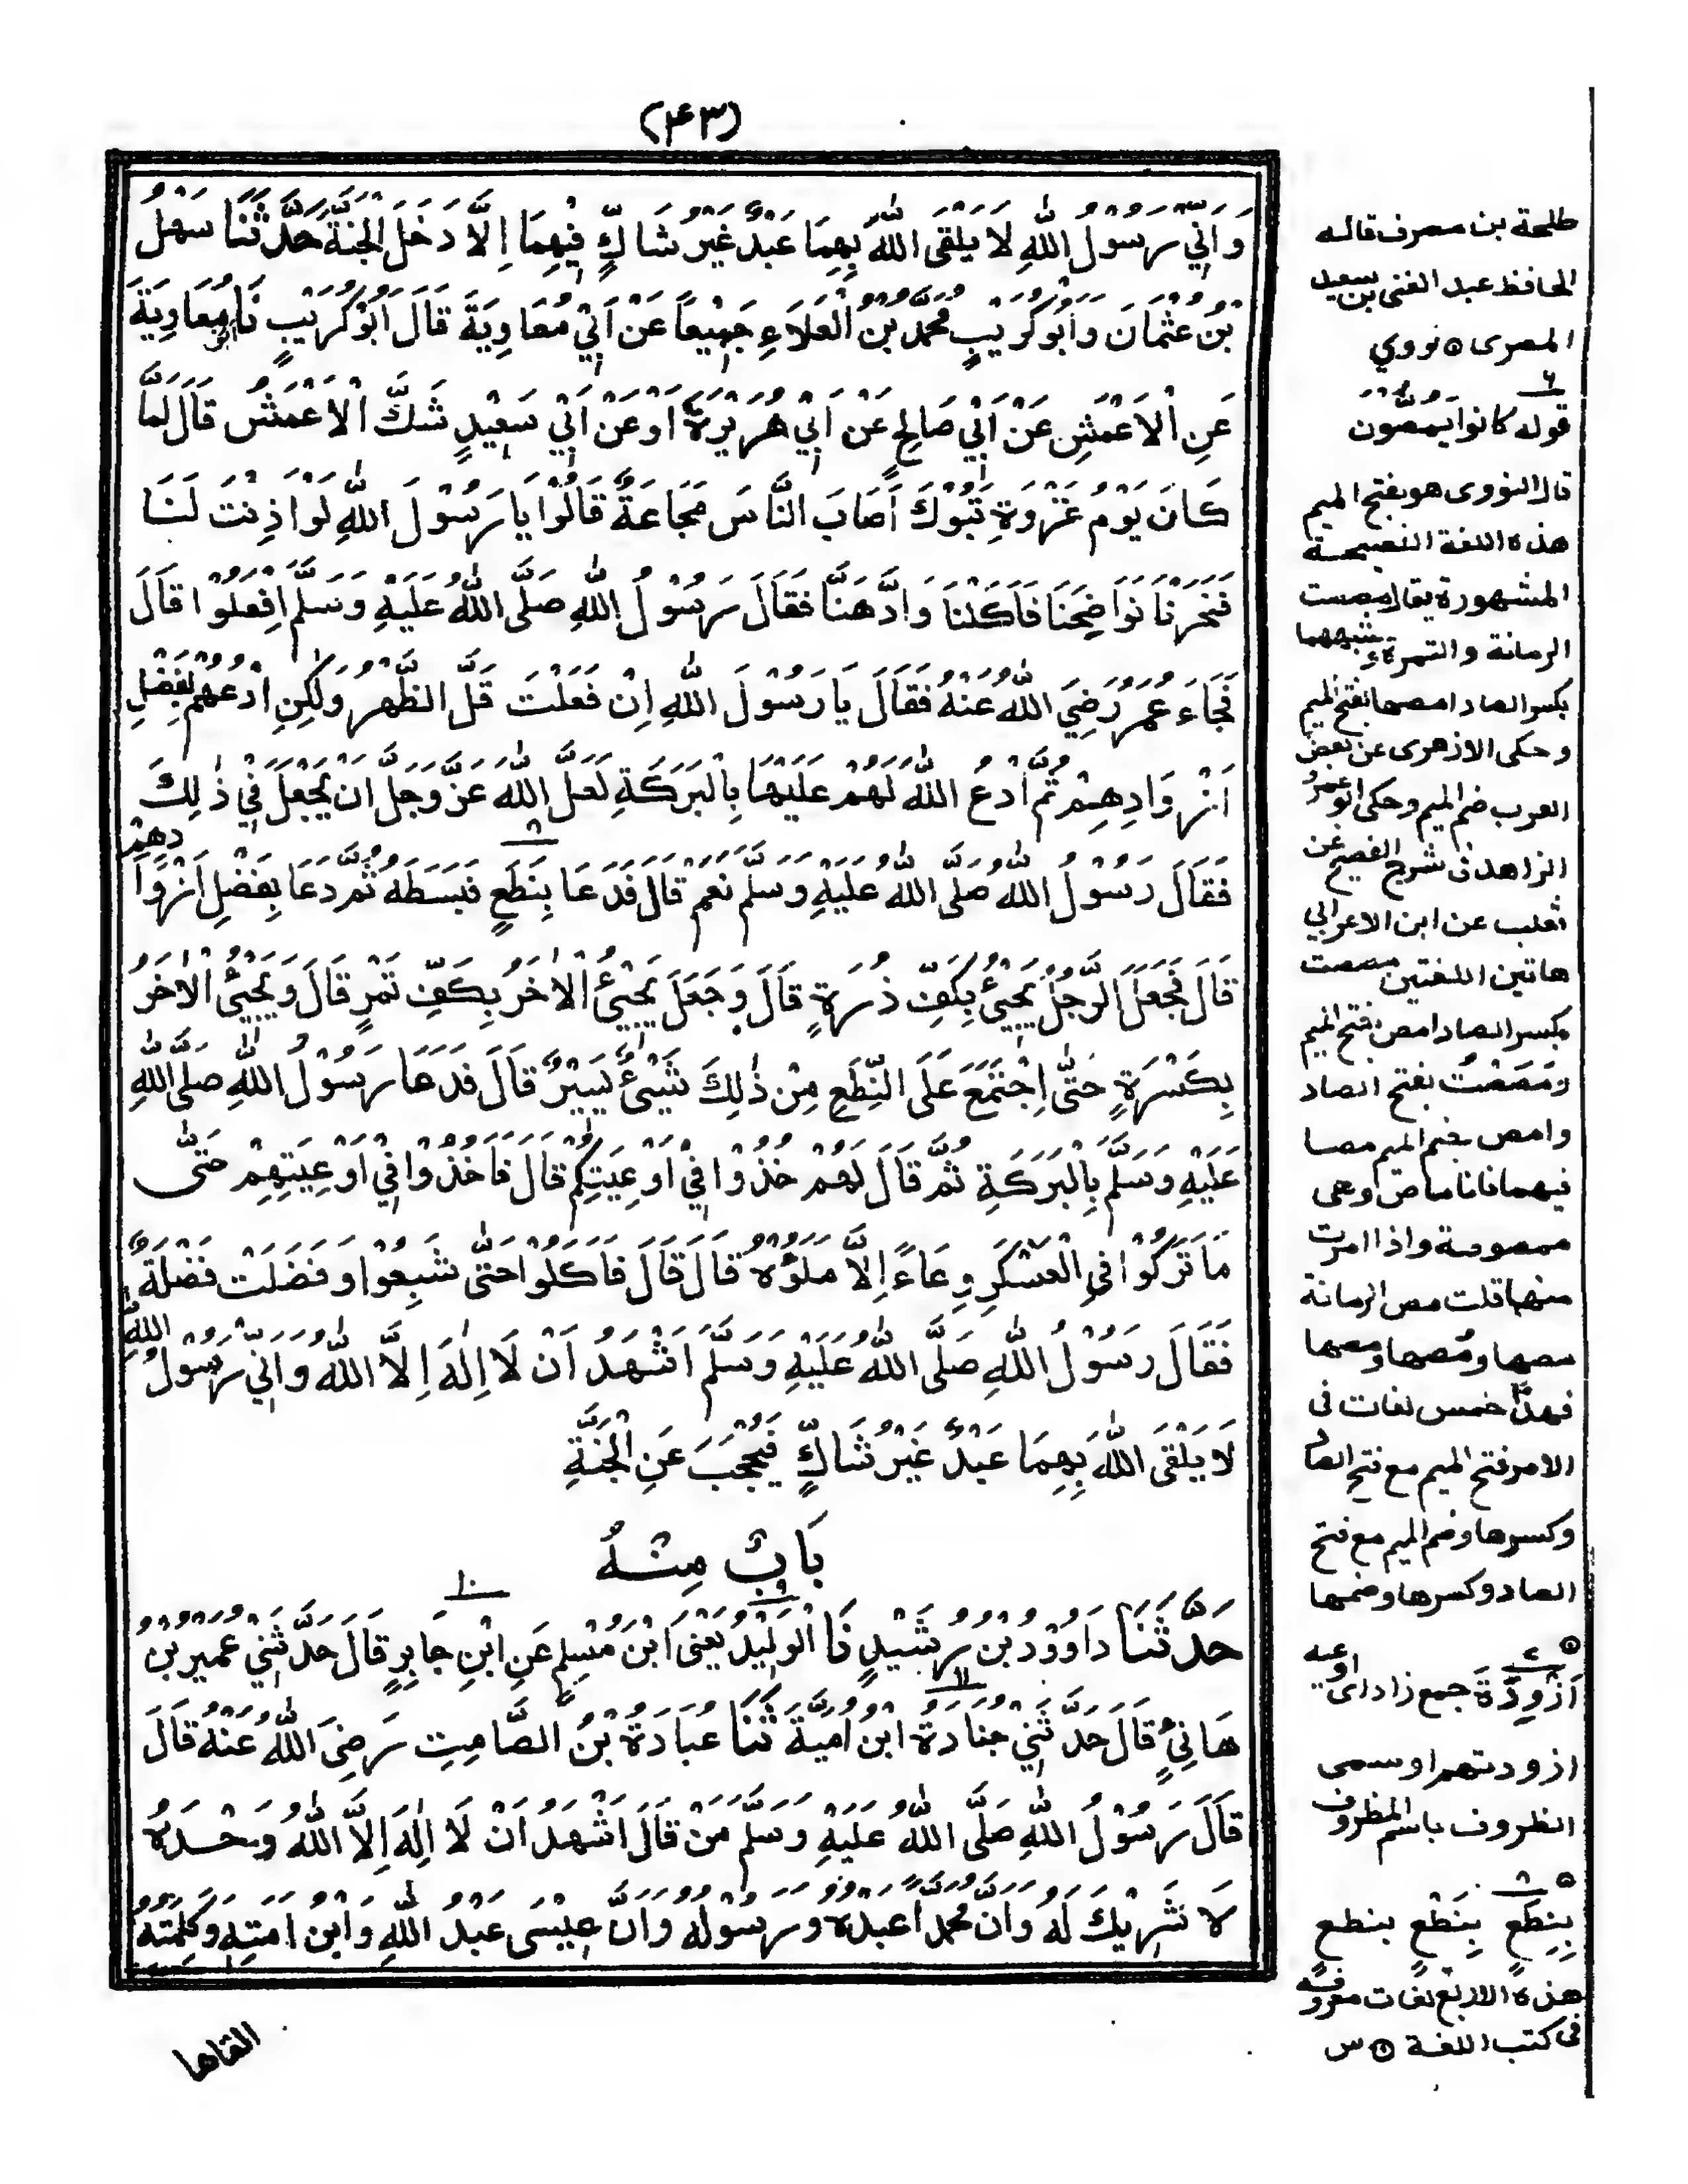 (۴۳)
وَاَنِّيْ رَسُوْلُ اللّٰهِ لَا يَلْقَى اللّٰهَ بِهِمَا عَبْدٌ غَيْرُ شَاكٍّ فِيْهِمَا اِلَّا دَخَلَ الْجَنَّةَ حَدَّثَنَا سَهْلُ
بْنُ عُثْمَانَ وَاَبُوْكُرَيْبٍ مُحَمَّدُ بْنُ الْعَلَاءِ جَمِيْعًا عَنْ اَبِيْ مُعَاوِيَةَ قَالَ اَبُوْكُرَيْبٍ نَا اَبُوْ مُعَاوِيَةَ
عَنِ الْاَعْمَشِ عَنْ اَبِيْ صَالِحٍ عَنْ اَبِيْ هُرَيْرَةَ اَوْ عَنْ اَبِيْ سَعِيْدٍ شَكَّ الْاَعْمَشُ قَالَ لَمَّا
كَانَ يَوْمُ غَزْوَةِ تَبُوْكَ اَصَابَ النَّاسَ مَجَاعَةٌ قَالُوْا يَا رَسُوْلَ اللّٰهِ لَوْ اَذِنْتَ لَنَا
فَنَحَرْنَا نَوَاضِحَنَا فَاَكَلْنَا وَادَّهَنَّا فَقَالَ رَسُوْلُ اللّٰهِ صَلَّى اللّٰهُ عَلَيْهِ وَسَلَّمَ اِفْعَلُوْا قَالَ
فَجَاءَ عُمَرُ رَضِيَ اللّٰهُ عَنْهُ فَقَالَ يَا رَسُوْلَ اللّٰهِ اِنْ فَعَلْتَ قَلَّ الظَّهْرُ وَلٰكِنِ ادْعُهُمْ بِفَضْلِ
اَزْوَادِهِمْ ثُمَّ ادْعُ اللّٰهَ لَهُمْ عَلَيْهَا بِالْبَرَكَةِ لَعَلَّ اللّٰهَ عَزَّ وَجَلَّ اَنْ يَجْعَلَ فِيْ ذٰلِكَ
فَقَالَ رَسُوْلُ اللّٰهِ صَلَّى اللّٰهُ عَلَيْهِ وَسَلَّمَ نَعَمْ قَالَ فَدَعَا بِنِطَعٍ فَبَسَطَهُ ثُمَّ دَعَا بِفَضْلِ اَزْوَادِهِمْ
قَالَ فَجَعَلَ الرَّجُلُ يَجِيْئُ بِكَفِّ ذُرَةٍ قَالَ وَجَعَلَ يَجِيْئُ الْاٰخَرُ بِكَفِّ تَمْرٍ قَالَ وَيَجِيْئُ الْاٰخَرُ
بِكَسْرَةٍ حَتّٰى اِجْتَمَعَ عَلَى النِّطَعِ مِنْ ذٰلِكَ شَيْئٌ يَسِيْرٌ قَالَ فَدَعَا رَسُوْلُ اللّٰهِ صَلَّى اللّٰهُ
عَلَيْهِ وَسَلَّمَ بِالْبَرَكَةِ ثُمَّ قَالَ لَهُمْ خُذُوْا فِيْ اَوْعِيَتِكُمْ قَالَ فَاَخَذُوْا فِيْ اَوْعِيَتِهِمْ حَتّٰى
مَا تَرَكُوْا فِي الْعَسْكَرِ وِعَاءً اِلَّا مَلَؤُهُ قَالَ قَالَ فَاَكَلُوْا حَتّٰى شَبِعُوْا وَفَضَلَتْ فَضْلَةٌ
فَقَالَ رَسُوْلُ اللّٰهِ صَلَّى اللّٰهُ عَلَيْهِ وَسَلَّمَ اَشْهَدُ اَنْ لَا اِلٰهَ اِلَّا اللّٰهُ وَاَنِّيْ رَسُوْلُ اللّٰهِ
لَا يَلْقَى اللّٰهَ بِهِمَا عَبْدٌ غَيْرُ شَاكٍّ فَيُحْجَبَ عَنِ الْجَنَّةِ
بَابٌ مِنْهُ
حَدَّثَنَا دَاوُوْدُ بْنُ رُشَيْدٍ نَا الْوَلِيْدُ يَعْنِى ابْنَ مُسْلِمٍ عَنِ ابْنِ جَابِرٍ قَالَ حَدَّثَنِيْ عُمَيْرُ بْنُ
هَانِئٍ قَالَ حَدَّثَنِيْ جُنَادَةُ ابْنُ اُمَيَّةَ ثَنَا عُبَادَةُ بْنُ الصَّامِتِ رَضِىَ اللّٰهُ عَنْهُ قَالَ
قَالَ رَسُوْلُ اللّٰهِ صَلَّى اللّٰهُ عَلَيْهِ وَسَلَّمَ مَنْ قَالَ اَشْهَدُ اَنْ لَا اِلٰهَ اِلَّا اللّٰهُ وَحْدَهُ
لَا شَرِيْكَ لَهُ وَاَنَّ مُحَمَّدًا عَبْدُهُ وَرَسُوْلُهُ وَاَنَّ عِيْسَى عَبْدُ اللّٰهِ وَابْنُ اَمَتِهِ وَكَلِمَتُهُ
القاها
طلحة بن مصرف قاله
الحافظ عبد الغنى بن سعيد
المصرى ٥ نووي
٦
قوله كانوا يمصون
قال النووى هو بفتح الميم
هذه اللغة الفصيحة
المشهورة يقال مصصت
الرمانة والتمرة وشبههما
بكسر الصاد امصها بفتح الميم
وحكى الازهرى عن بعض
العرب ضم الميم وحكى ابو عمر
الزاهد فى شرح الفصيح عن
ثعلب عن ابن الاعرابي
هاتين اللغتين مصصت
بكسر الصاد امص بفتح الميم
ومصصت بفتح الصاد
وامص بضم الميم مصا
فيهما فانا ماص وهى
ممصوصة واذا امرت
منها قلت مص الرمانة
مصها ومُصها ومصها
فهذه خمس لغات فى
الامر فتح الميم مع فتح الصاد
وكسرها وضم الميم مع فتح
الصاد وكسرها وضمها
٥ ٧
اَزْوِدَةَ جمع زاد اى اوعية
ازودتهم او سمى
الظروف باسم المظروف
٥ ٨
بِنِطَعٍ بِنَطْعٍ بنطع
هذه الاربع لغات معروفة
فى كتب اللغة ٥ س